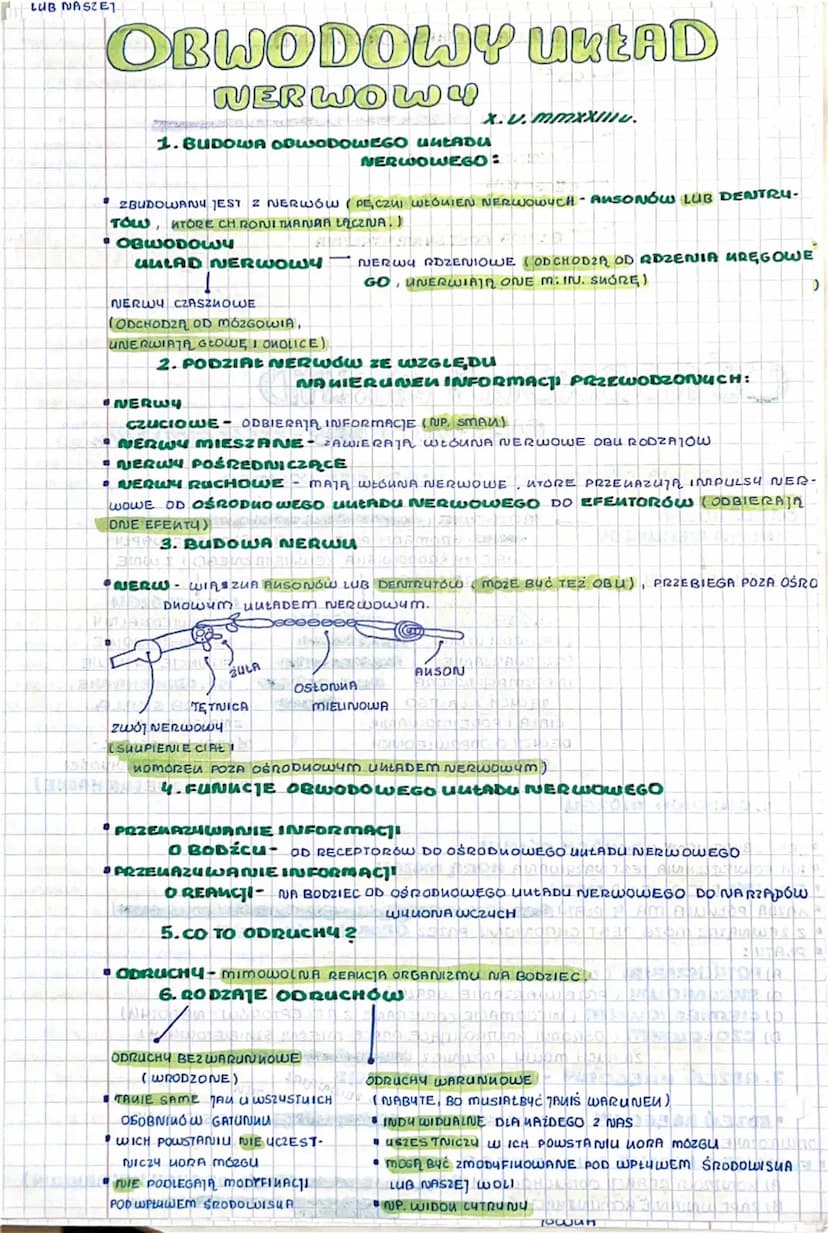 LUB NASZEJ
OBWODOWY UKŁAD
NERWOWY
X. V. MMXXIII r.
1. BUDOWA OBWODOWEGO UKŁADU
NERWOWEGO:
• ZBUDOWANY JEST Z NERWÓW (PĘCZKI WŁÓKIEN NERWOWYCH - AKSONÓW LUB DENTRY-
TÓW, KTÓRE CHRONI TKANKA ŁĄCZNA.)
• OBWODOWY
UKŁAD NERWOWY — NERWY RDZENIOWE (ODCHODZĄ OD RDZENIA KRĘGOWE
GO, UNERWIAJĄ ONE M. IN. SKÓRĘ)
NERWY CZASZKOWE
(ODCHODZĄ OD MÓZGOWIA,
UNERWIAJĄ GŁOWĘ I OKOLICE)
2. PODZIAŁ NERWÓW ZE WZGLĘDU
NA KIERUNEK INFORMACJI PRZEWODZONYCH:
• NERWY
CZUCIOWE - ODBIERAJĄ INFORMACJE (NP. SMAK)
• NERWY MIESZANE - ZAWIERAJĄ WŁÓKNA NERWOWE OBU RODZAJÓW
• NERWY POŚREDNICZĄCE
• NERWY RUCHOWE - MAJĄ WŁÓKNA NERWOWE, KTÓRE PRZEKAZUJĄ IMPULSY NER-
WOWE OD OŚRODKOWEGO UKŁADU NERWOWEGO DO EFEKTORÓW (ODBIERAJĄ
ONE EFEKTY)
3. BUDOWA NERWU
• NERW - WIĄZKA AKSONÓW LUB DENTRYTÓW (MOŻE BYĆ TEŻ OBU), PRZEBIEGA POZA OŚRO
DKOWYM UKŁADEM NERWOWYM.
ŻYŁA
AKSON
OSŁONKA
TĘTNICA MIELINOWA
ZWÓJ NERWOWY
(SKUPIENIE CIAŁ
KOMÓREK POZA OŚRODKOWYM UKŁADEM NERWOWYM)
4. FUNKCJE OBWODOWEGO UKŁADU NERWOWEGO
• PRZEKAZYWANIE INFORMACJI
O BODŹCU - OD RECEPTORÓW DO OŚRODKOWEGO UKŁADU NERWOWEGO
• PRZEKAZYWANIE INFORMACJI
O REAKCJI - NA BODZIEC OD OŚRODKOWEGO UKŁADU NERWOWEGO DO NARZĄDÓW
WYKONAWCZYCH
5. CO TO ODRUCHY?
• ODRUCHY - MIMOWOLNA REAKCJA ORGANIZMU NA BODZIEC.
6. RODZAJE ODRUCHÓW
ODRUCHY BEZWARUNKOWE
(WRODZONE)
• TAKIE SAME JAK U WSZYSTKICH
OSOBNIKÓW GATUNKU
• W ICH POWSTANIU NIE UCZEST-
NICZY KORA MÓZGU
• NIE PODLEGAJĄ MODYFIKACJI
POD WPŁYWEM ŚRODOWISKA
ODRUCHY WARUNKOWE
(NABYTE, BO MUSIAŁ BYĆ JAKIŚ WARUNEK)
• INDYWIDUALNE DLA KAŻDEGO Z NAS
• UCZESTNICZY W ICH POWSTANIU KORA MÓZGU
• MOGĄ BYĆ ZMODYFIKOWANE POD WPŁYWEM ŚRODOWISKA
LUB NASZEJ WOLI
• NP. WIDOK CYTRYNY